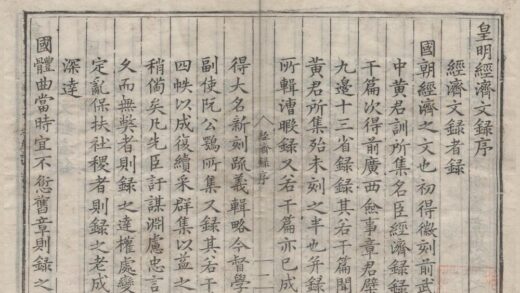 皇明經濟文録序
經濟文録者録
國朝經濟之文也初得徽刻前武
中黄君訓所集名臣經濟録録
干篇次得前廣西僉事章君檗
九邉十三省録録其若干篇聞
黄君所集殆未刻之半也并録
所輯漕𦨣録又若干篇亦已成
經濟録序
一
二
得大名新刻疏義輯略今督學
副使阮公鶚所集又録其若干
四帙以成後續采群集以益之
稍僃矣凡先臣訏謀淵慮忠言
久而無獘者則録之達權處變
定亂保扶社稷者則録之老成
深達
國體曲當時宜不愆舊章則録之